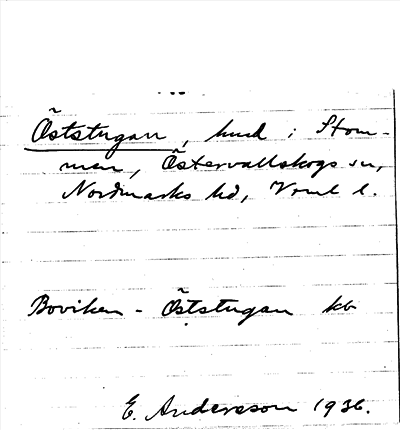 Öststugan, hmd i Stom-
men, Östervallskogs sn,
Nordmarks hd, Vrml l.
Boviken - Öststugan kb
E. Andersson 1936.